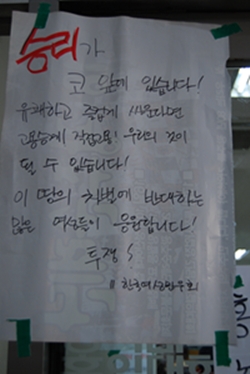 승리가
코 앞에 있습니다!
유쾌하고 즐겁게 싸운다면
고용승계 직접고용! 우리의 것이
될 수 있습니다!
이 땅의 차별에 반대하는
많은 여성들이 응원합니다!
투쟁!
한국여성민우회